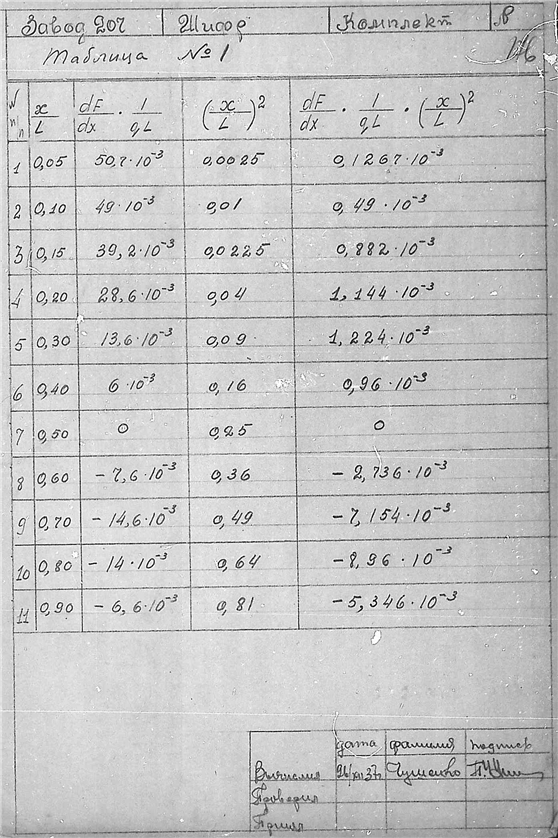 Завод 207 Шифр Комплект
Таблица № 1
N п/п x/L dF/dx · 1/qL (x/L)² dF/dx · 1/qL · (x/L)²
1 0,05 50,7·10⁻³ 0,0025 0,1267·10⁻³
2 0,10 49·10⁻³ 0,01 0,49·10⁻³
3 0,15 39,2·10⁻³ 0,0225 0,882·10⁻³
4 0,20 28,6·10⁻³ 0,04 1,144·10⁻³
5 0,30 13,6·10⁻³ 0,09 1,224·10⁻³
6 0,40 6·10⁻³ 0,16 0,96·10⁻³
7 0,50 0 0,25 0
8 0,60 -7,6·10⁻³ 0,36 -2,736·10⁻³
9 0,70 -14,6·10⁻³ 0,49 -7,154·10⁻³
10 0,80 -14·10⁻³ 0,64 -8,96·10⁻³
11 0,90 -6,6·10⁻³ 0,81 -5,346·10⁻³
дата фамилия подпись
Вычислил
Проверил
Принял